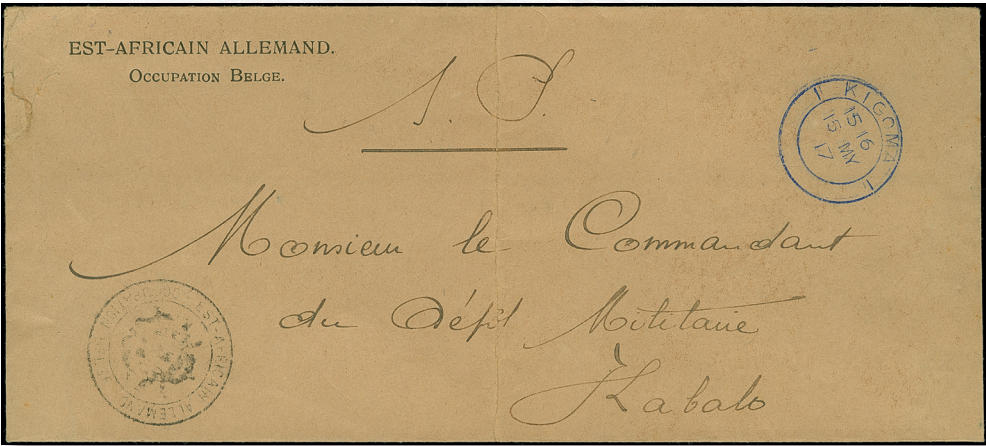 EST-AFRICAIN ALLEMAND.
OCCUPATION BELGE.
S. P.
KIGOMA
15 16
15 MY
17
Monsieur le Commandant
du Dépôt Militaire
Kabalo
EST-AFRICAIN ALLEMAND